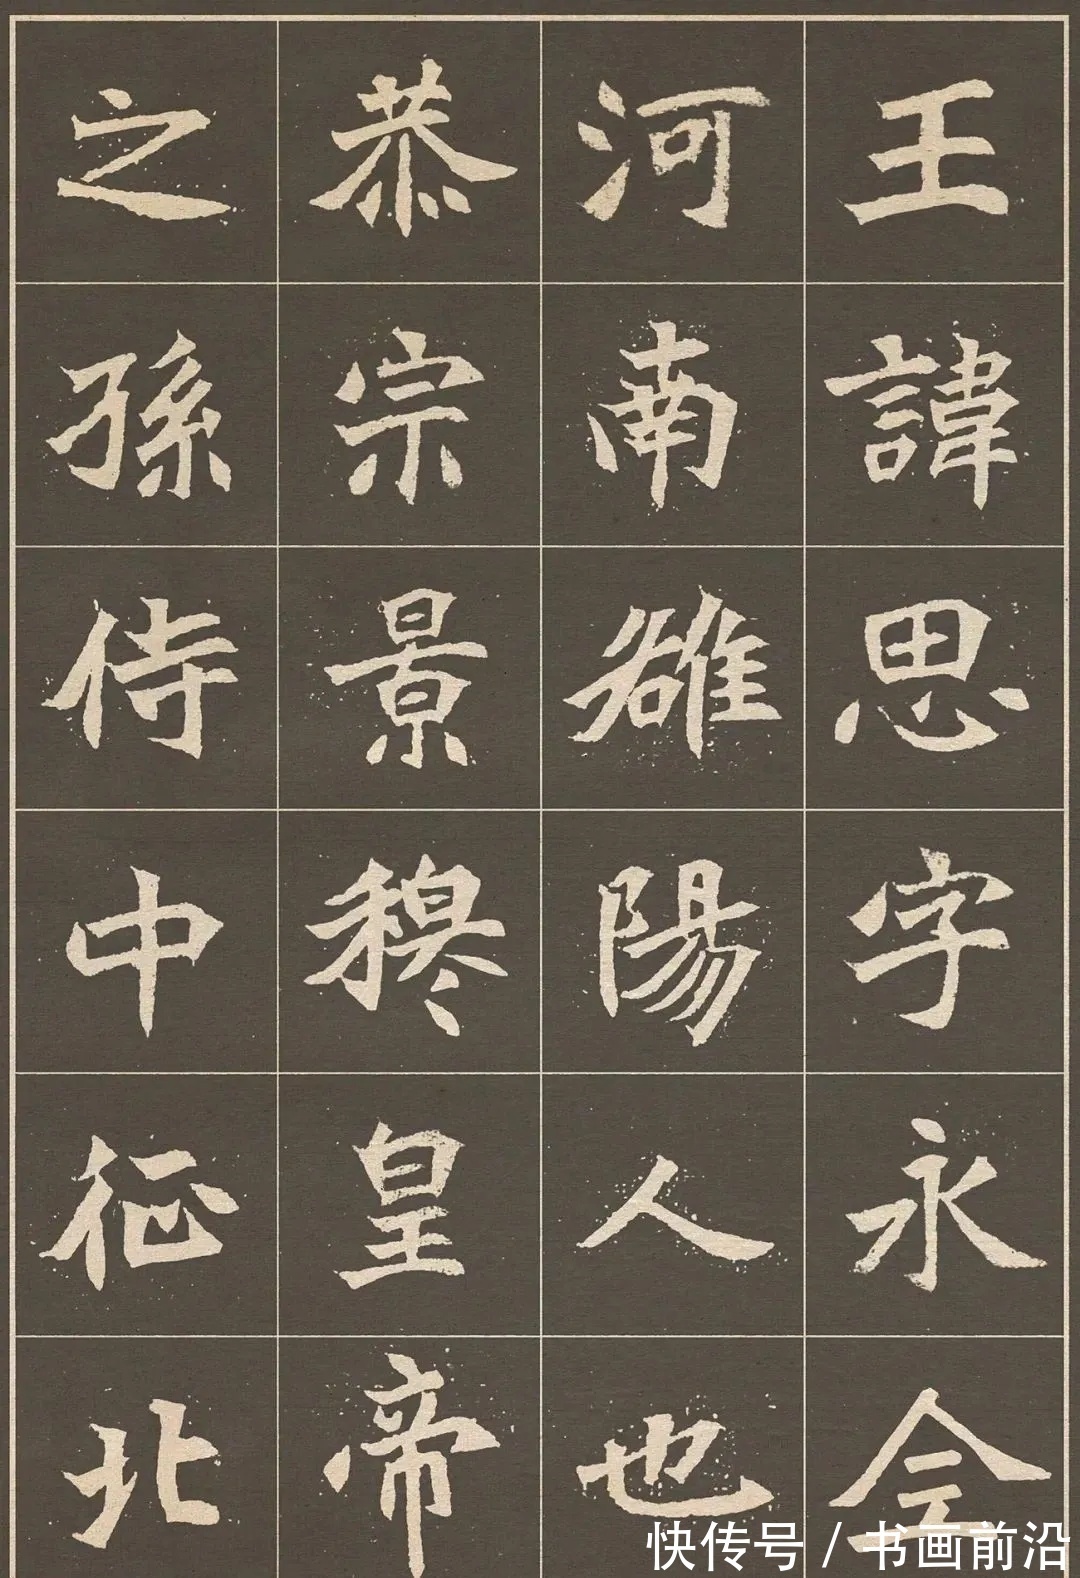 王諱思字永全
河南雒陽人也
恭宗景穆皇帝
之孫侍中征北
快传号 / 书画前沿